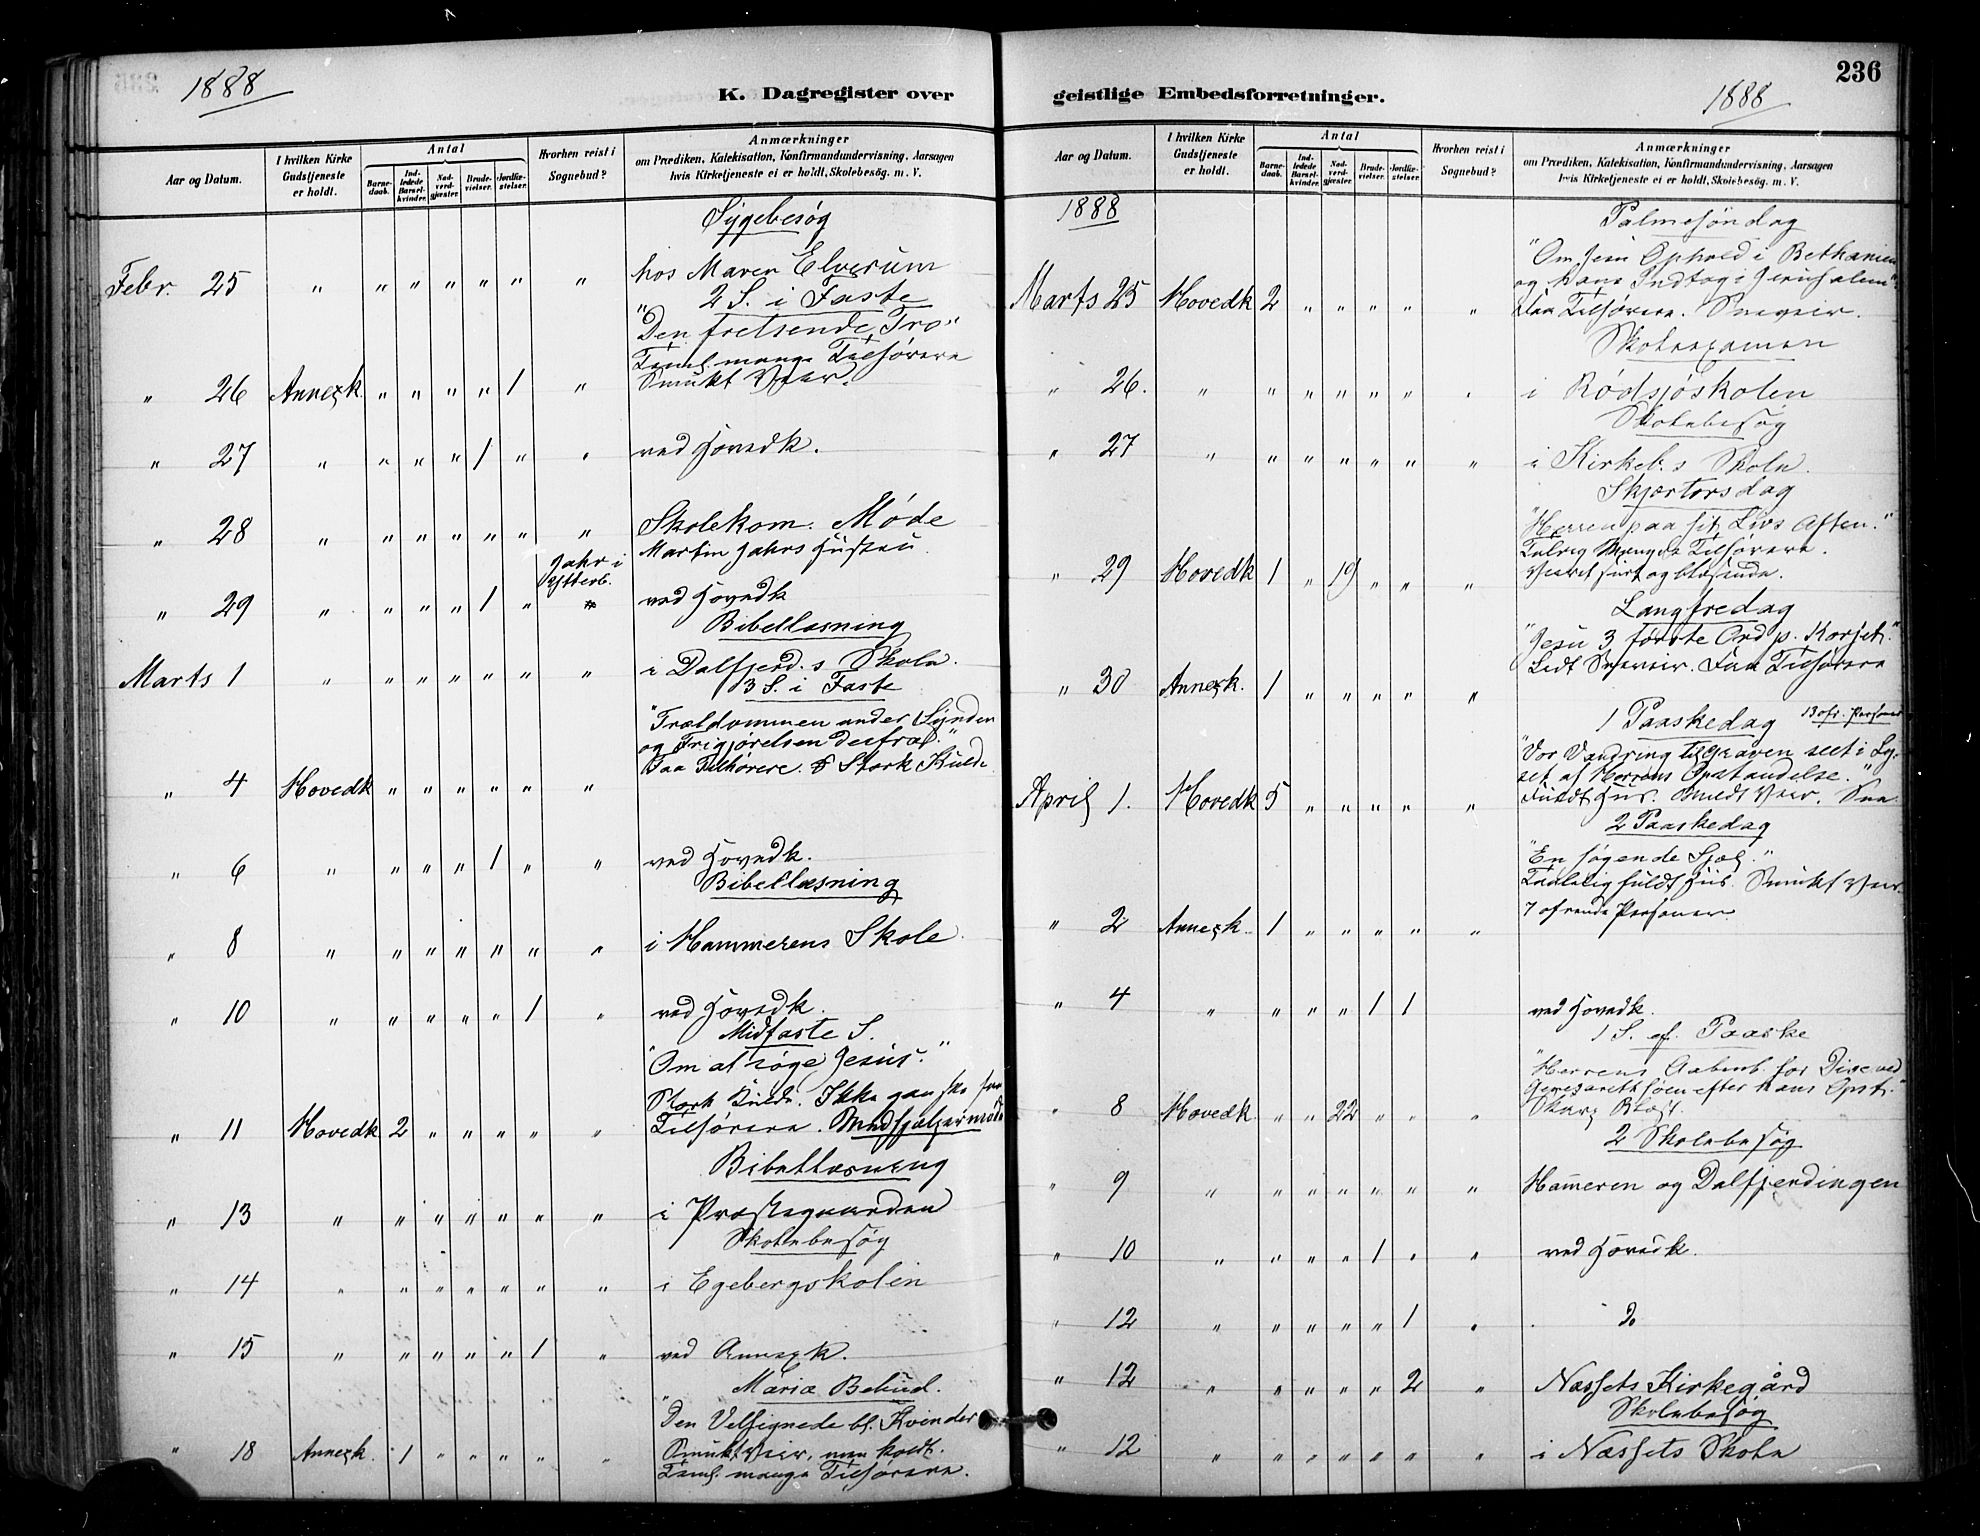 1888
K. Dagregister over
Aar og Datum.
I hvilken Kirke Gudstjeneste er holdt.
Antal
Barnedaab.
Indledede Barselkvinder.
Nadverdgjester.
Brudevielser.
Jordfæstelser.
Hvorhen reist i Sognebud?
Anmærkninger
om Prædiken, Katekisation, Konfirmandundervisning, Aarsagen
hvis Kirketjeneste ei er holdt, Skolebesøg. m. V.
Sygebesøg
Febr. 25 " " " " " " " hos Maren Elverum
2 S. i Faste
"Den frelsende Tro"
Teml. mange Tilhørere
" 26 Annexk. " " " " 1 " Smukt Veir.
" 27 " " " " 1 " " ved Hovedk.
" 28 " " " " " " " Skolekom. Møde
Jahr i Ytterb. Martin Jahrs Hustru
" 29 " " " " 1 " " ved Hovedk
Bibellæsning
Marts 1 " " " " " " " i Dalfjerd.s Skole.
3 S. i Faste
"Trældommen under Synden
og Frigjørelsen derfra."
Faa Tilhørere. Stærk Kulde
" 4 Hovedk " " " " " "
" 6 " " " " 1 " " ved Hovedk.
Bibellæsning
" 8 " " " " " " " i Hammerens Skole
" 10 " " " " " 1 " ved Hovedk.
Midfaste S.
"Om at søge Jesus."
Stærk Kulde. Ikke ganske faa
" 11 Hovedk 2 " " " " " Tilhørere.
Bibellæsning
" 13 " " " " " " " i Præstegaarden
Skolebesøg
" 14 " " " " " " " i Egebergskolen
" 15 " " " " " 1 " ved Annexk.
Mariæ Bebud.
"Den Velsignede bl. Kvinder
Smukt Veir, men koldt.
" 18 Annexk. 1 " " " " " Teml. mange Tilhørere.
geistlige Embedsforretninger.
1888
236
Aar og Datum.
I hvilken Kirke Gudstjeneste er holdt.
Antal
Barnedaab.
Indledede Barselkvinder.
Nadverdgjester.
Brudevielser.
Jordfæstelser.
Hvorhen reist i Sognebud?
Anmærkninger
om Prædiken, Katekisation, Konfirmandundervisning, Aarsagen
hvis Kirketjeneste ei er holdt, Skolebesøg. m. V.
1888
Palmesøndag
"Om Jesu Ophold i Bethanien
og hans Indtog i Jerusalem"
Marts 25 Hovedk 2 " " " " " Faa Tilhørere. Sneveir.
Skoleexamen
" 26. " " " " " " " i Rødsjøskolen
Skolebesøg
" 27 " " " " " " " i Kirkeb.s Skole.
Skjærtorsdag
"Herren paa sit Livs Aften."
Talrig Mængde Tilhørere.
" 29 Hovedk 1 " 19 " " " Veiret surt og blæsende.
Langfredag
"Jesu 3 første Ord p. Korset."
" 30 Annexk. 1 " " " " " Lidt Sneveir. Faa Tilhørere
1 Paaskedag 13 ofr. Personer
"Vor Vandring til Graven seet i Ly-
set af Herrens Opstandelse."
April 1. Hovedk 5 " " " " " Fuldt Hus. Mildt Veir. Sne
2 Paaskedag
"En søgende Sjæl."
Taalelig fuldt Hus. Smukt Veir
" 2 Annexk. 1 " " " " " 7 ofrende Personer
" 4 " " " " 1 1 ved Hovedk.
1 S. ef. Paaske
"Herrens Aabenb. for Disc. ved
Genezarethsøen efter hans Opst."
" 8 Hovedk " " 22 " " " Skarp Blæst.
2 Skolebesøg
" 9 " " " " " " " Hameren og Dalfjerdingen
" 10 " " " " 1 " " ved Hovedk.
" 12 " " " " " 1 " Do
" 12 " " " " " 2 " Næssets Kirkegård
Skolebesøg
" 12 " " " " " " " i Næssets Skole